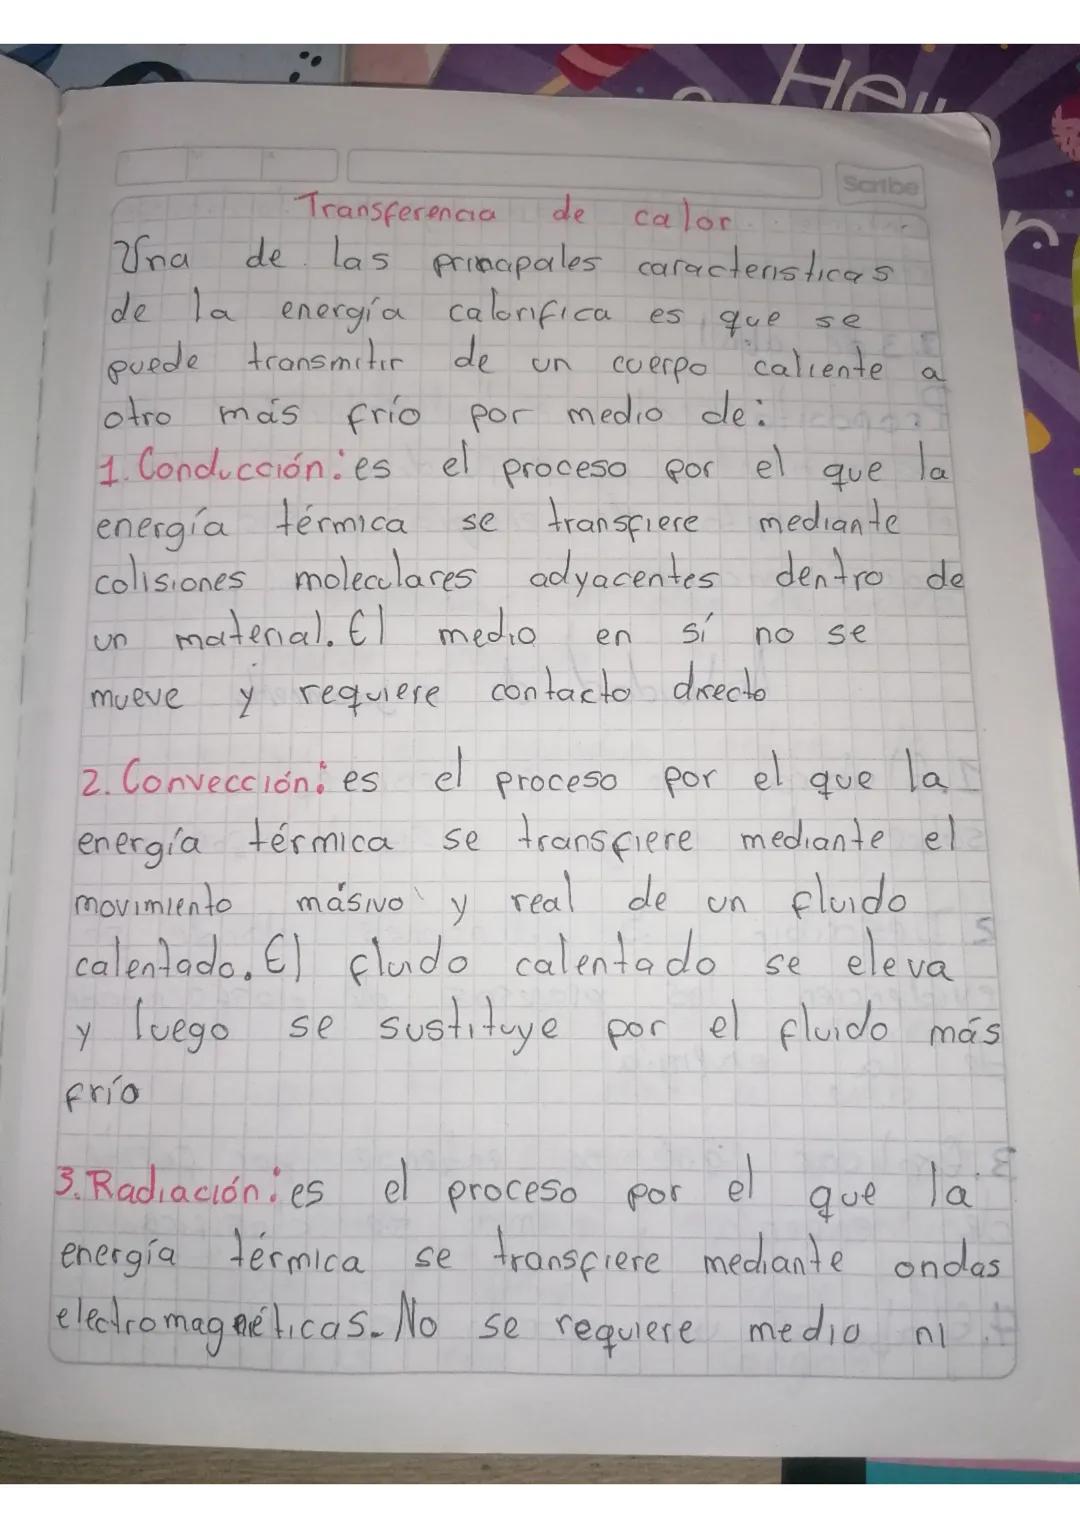 Hello
Scribe
Transferencia de calor
Una de las principales características
de la energía calorifica es que se
puede transmitir de un cuerpo caliente a
otro más frío por medio de:
1. Conducción: es el proceso por el que la
energía térmica se transfiere mediante
colisiones moleculares adyacentes dentro de
un material. El medio en sí no se
mueve y requiere contacto directo
2. Convección: es el proceso por el que la
energía térmica se transfiere mediante el
movimiento másivo y real de un fluido
calentado. El fluido calentado se eleva
y luego se sustituye por el fluido más
frío
3. Radiación: es el proceso por el que la
energía térmica se transfiere mediante ondas
electromagnéticas. No se requiere medio ni